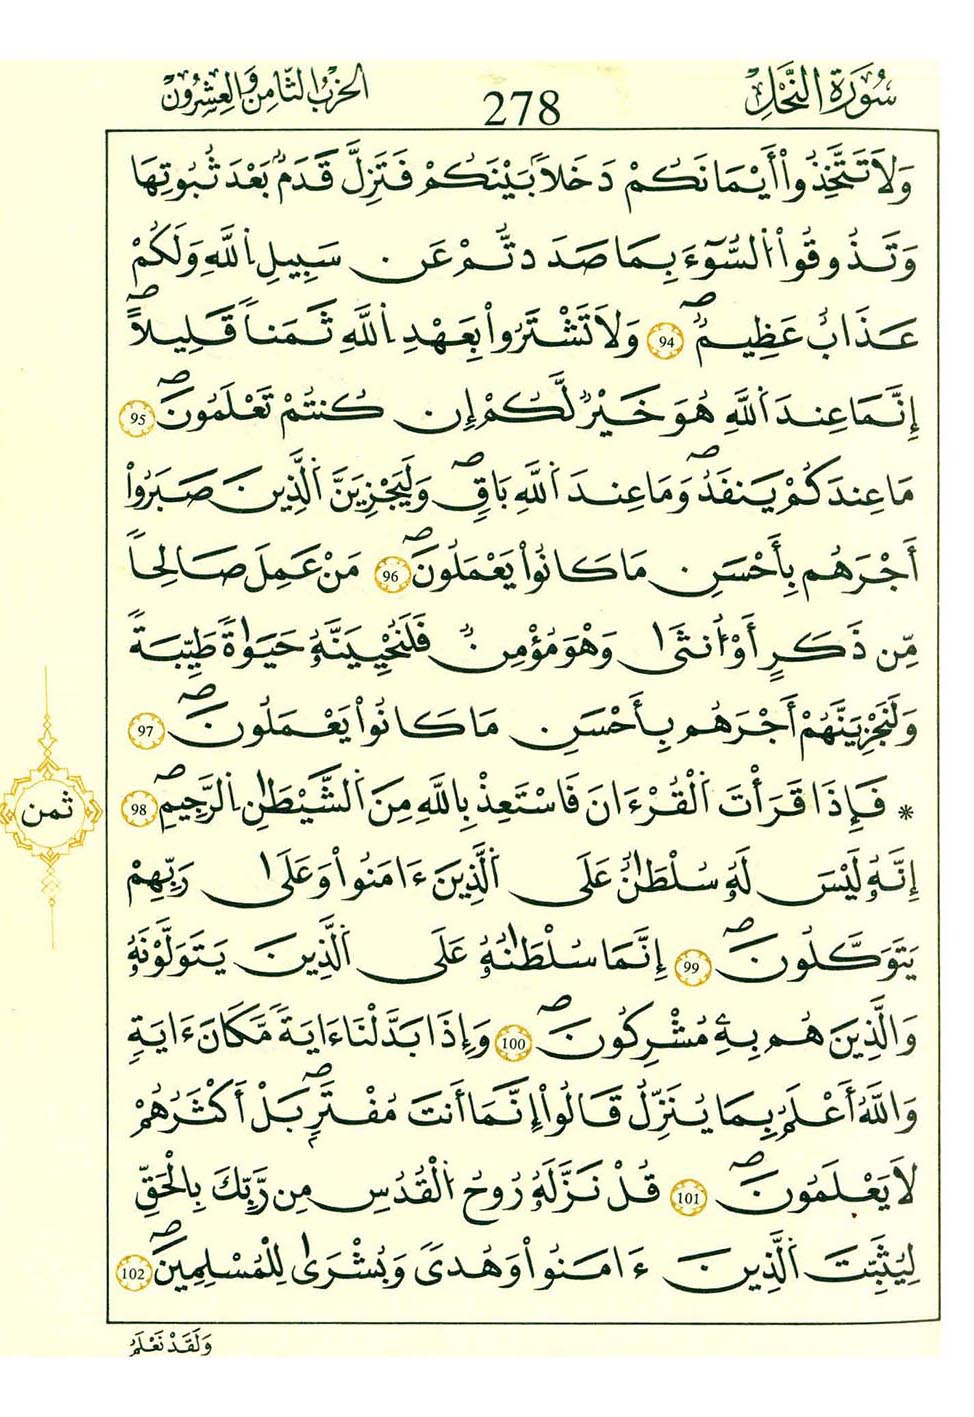 سُورَةُ النَّحْلِ 278 الحِزْبُ الثَّامِنُ وَالْعِشْرُونَ
وَلَا تَتَّخِذُوٓاْ أَيْمَٰنَكُمْ دَخَلَاۢ بَيْنَكُمْ فَتَزِلَّ قَدَمُۢ بَعْدَ ثُبُوتِهَا
وَتَذُوقُواْ اُ۬لسُّوٓءَ بِمَا صَدَدتُّمْ عَن سَبِيلِ اِ۬للَّهِ وَلَكُمْ
عَذَابٌ عَظِيمٌ 94 وَلَا تَشْتَرُواْ بِعَهْدِ اِ۬للَّهِ ثَمَناٗ قَلِيلًا
إِنَّمَا عِندَ اَ۬للَّهِ هُوَ خَيْرٞ لَّكُمْ إِن كُنتُمْ تَعْلَمُونَ 95
مَا عِندَكُمْ يَنفَدُ وَمَا عِندَ اَ۬للَّهِ بَاقٖ وَلَيَجْزِيَنَّ اَ۬لذِينَ صَبَرُوٓاْ
أَجْرَهُم بِأَحْسَنِ مَا كَانُواْ يَعْمَلُونَ 96 مَنْ عَمِلَ صَٰلِحاٗ
مِّن ذَكَرٍ أَوُ ا۟نثَىٰ وَهْوَ مُؤْمِنٞ فَلَنُحْيِيَنَّهُۥ حَيَوٰةٗ طَيِّبَةٗ
وَلَنَجْزِيَنَّهُمْ أَجْرَهُم بِأَحْسَنِ مَا كَانُواْ يَعْمَلُونَ 97
* فَإِذَا قَرَأْتَ اَ۬لْقُرْءَانَ فَاسْتَعِذْ بِاللَّهِ مِنَ اَ۬لشَّيْطَٰنِ اِ۬لرَّجِيمِ 98
ثمن
إِنَّهُۥ لَيْسَ لَهُۥ سُلْطَٰنٌ عَلَى اَ۬لذِينَ ءَامَنُواْ وَعَلَىٰ رَبِّهِمْ
يَتَوَكَّلُونَ 99 إِنَّمَا سُلْطَٰنُهُۥ عَلَى اَ۬لذِينَ يَتَوَلَّوْنَهُۥ
وَالذِينَ هُم بِهِۦ مُشْرِكُونَ 100 وَإِذَا بَدَّلْنَآ ءَايَةٗ مَّكَانَ ءَايَةٖ
وَاللَّهُ أَعْلَمُ بِمَا يُنَزِّلُ قَالُوٓاْ إِنَّمَآ أَنتَ مُفْتَرِۭ بَلْ أَكْثَرُهُمْ
لَا يَعْلَمُونَ 101 قُلْ نَزَّلَهُۥ رُوحُ اُ۬لْقُدُسِ مِن رَّبِّكَ بِالْحَقِّ
لِيُثَبِّتَ اَ۬لذِينَ ءَامَنُواْ وَهُدىٗ وَبُشْرَىٰ لِلْمُسْلِمِينَ 102
وَلَقَدْ نَعْلَمُ